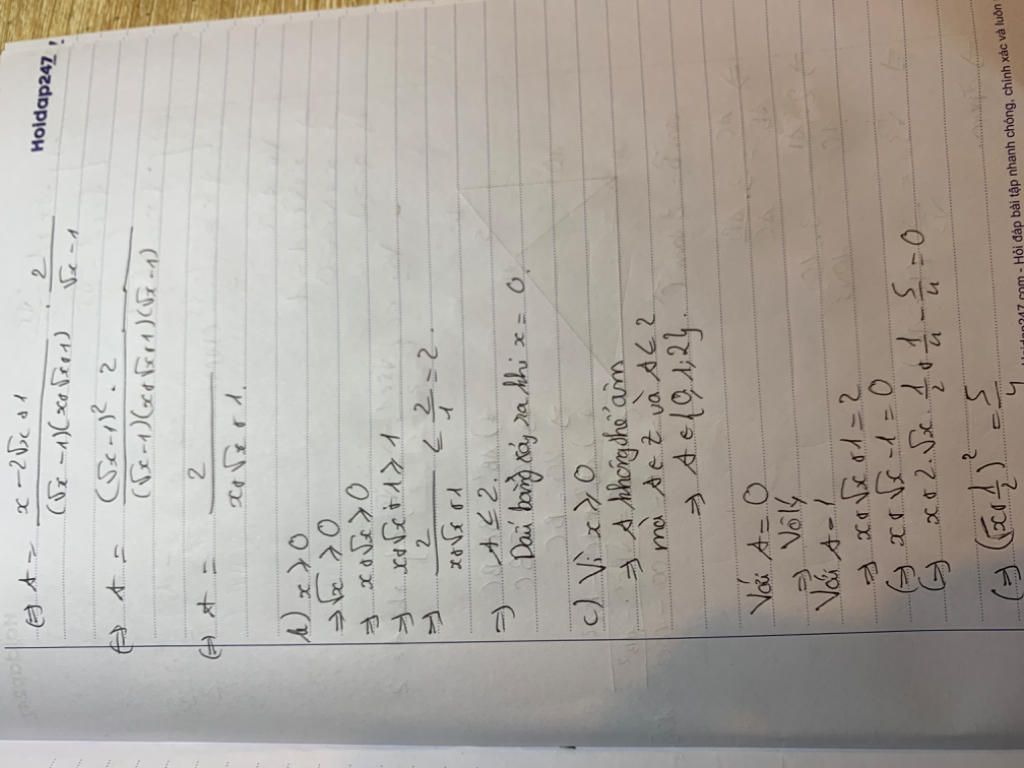 Hoidap247
(=) A = \frac{x-2\sqrt{x}+1}{(\sqrt{x}-1)(x+\sqrt{x}+1)} . \frac{2}{\sqrt{x}-1}
(=) A = \frac{(\sqrt{x}-1)^2 . 2}{(\sqrt{x}-1)(x+\sqrt{x}+1)(\sqrt{x}-1)}
(=) A = \frac{2}{x+\sqrt{x}+1}.
b) x ⩾ 0
⇒ \sqrt{x} ⩾ 0
⇒ x+\sqrt{x} ⩾ 0
⇒ x+\sqrt{x}+1 ⩾ 1
⇒ \frac{2}{x+\sqrt{x}+1} ≤ \frac{2}{1} = 2
⇒ A ≤ 2.
Dấu bằng xảy ra khi x = 0.
c) Vì x ⩾ 0
⇒ A không thể âm
mà A ∈ Z và A ≤ 2
⇒ A ∈ {0,1,2}.
Với A = 0
⇒ Vô lý
Với A = 1
⇒ x+\sqrt{x}+1 = 2
(=) x+\sqrt{x}-1 = 0
(=) x+2.\sqrt{x}.\frac{1}{2}+\frac{1}{4}-\frac{5}{4} = 0
(=) (\sqrt{x}+\frac{1}{2})^2 = \frac{5}{4}
247.com - Hỏi đáp bài tập nhanh chóng, chính xác và luôn